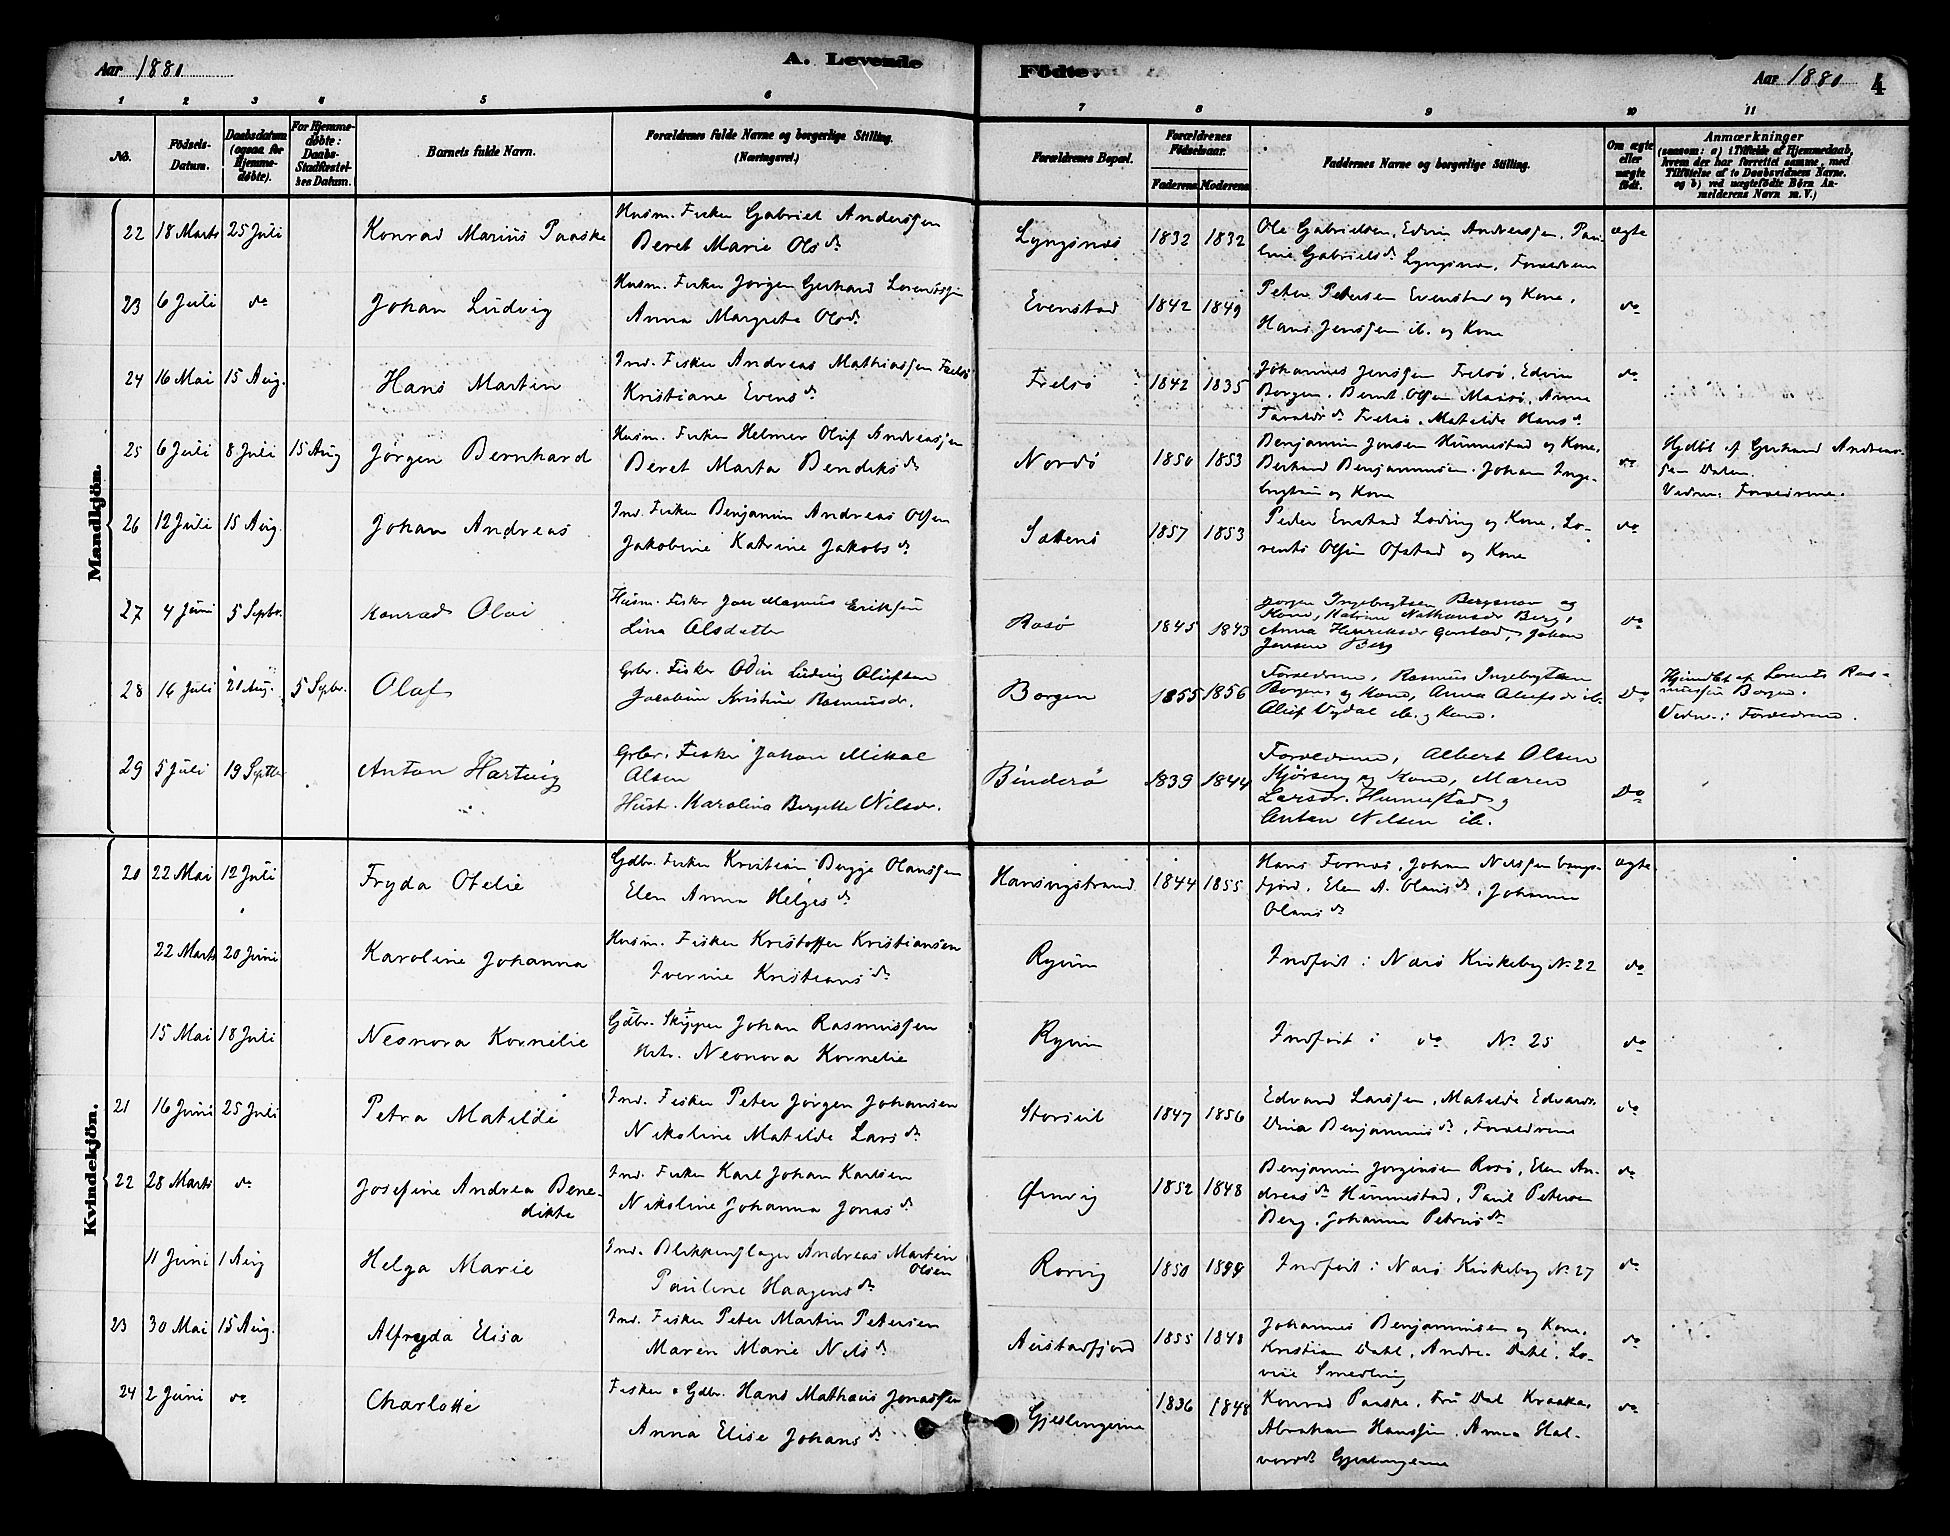 Aar 1880
A. Levende
Födte.
Aar 1880
4
1 2 3 4 5 6 7 8 9 10 11
No.
Födsels-
Datum.
Daabsdatum
(ogsaa for
Hjemme-
döbte).
For Hjemme-
döbte:
Daabs-
Stadfæstel-
ses Datum.
Barnets fulde Navn.
Forældrenes fulde Navne og borgerlige Stilling.
(Næringsvei.)
Forældrenes Bopæl.
Forældrenes
Födselsaar.
Faderens Moderens
Faddernes Navne og borgerlige Stilling.
Om ægte
eller
uægte
födt.
Anmærkninger
(saasom: a) i Tilfælde af Hjemmedaab,
hvem der har forrettet samme, med
Tilföielse af to Daabsvidners Navne.
og b) ved uægtefödte Börn An-
melderens Navn m. V.)
Mandkjön.
22 18 Marts 25 Juli Konrad Marius Paaske
Husm. Fisker Gabriel Anderssen
Beret Marie Olsdr
Lyngsnæs 1832 1832
Ole Gabrielsen, Edvin Anderssen, Pau-
line Gabrielsdr Lyngsnæs, Forældrene
ægte
23 6 Juli do Johan Ludvig
Husm. Fisker Jørgen Gerhard Lorentssen
Anna Margrete Olsdr
Evenstad 1842 1849
Peter Petersen Evenstad og Kone,
Hans Jenssen ib. og Kone
do
24 16 Mai 15 Aug. Hans Martin
Ind. Fisker Andreas Mathiassen Frelsø
Kristiane Evensdr
Frelsø 1842 1835
Johannes Jenssen Frelsø, Edvin
Borgen, Bernt Olsen Marsø, Anne
Frelsø, Matilde Hansdr
do
25 6 Juli 8 Juli 15 Aug Jørgen Bernhard
Husm. Fisker Helmer Oluf Andreassen
Beret Marta Bendiksdr
Nordø 1850 1853
Benjamin Jensen Hunnestad og Kone,
Benjaminsen. Johan Inge-
brigtsen og Kone
do
Hjdbt af Gerhard Andreas-
sen Dalen.
Vidner: Forældrene.
26 12 Juli 15 Aug. Johan Andreas
Ind. Fisker Benjamin Andreas Olsen
Jakobine Katrine Jakobsdr
Sætersø 1857 1853
Peder Enstad Loding og Kone, Lo-
rents Olsen Ofstad og Kone
do
27 4 Juni 5 Septbr. Konrad Olai
Husm. Fisker Jon Magnus Eriksen
Lina Olsdatter
Rosø 1845 1843
Jørgen Ingebrigtsen Bergsnov og
Kone, Katrine Nathanaelsdr Berg,
Anna Henriksdr Garstad, Johan
Jensen Berg
do
28 16 Juli 21 Aug. 5 Septbr. Olaf
Grbr. Fisker Odin Ludvig Olufsen
Jacobine Kristine Rasmusdr.
Borgen 1855 1856
Forældrene, Rasmus Ingebrigtsen
Borgen og Kone, Anna Olufsdr ib.
Oluf Vigdal ib. og Kone.
Do
Hjemdbt af Lorents Ras-
mussen Borgen.
Vidner: Forældrene.
29 5 Juli 19 Septbr Anton Hartvig
Grbr. Fisker Johan Mikkal
Olsen
Hustr. Karolina Bergitte Nilsdr.
Binderø 1839 1844
Forældrene, Albert Olsen
Kjørseng og Kone, Maren
Larsdr. Hunnestad og
Anton Nilsen ib.
Do
Kvindekjön.
20 22 Mai 12 Juli Fryda Otelie
Gdbr. Fisker Kristian Brygge Olaussen
Elen Anna Helgesdr
Hansvigstrand 1844 1855
Hans Fornæs, Johan Nilssen Langs-
fjord, Elen A. Olausdr, Johanna
Olausdr
ægte
22 Marts 20 Juni Karoline Johanna
Husm. Fisker Kristoffer Kristiansen
Iverine Kristiansdr
Ryum
Indført i Nærø Kirkebog No 22
do
15 Mai 18 Juli Neonora Kornelie
Gdbr. Skipper Johan Rasmussen
Hstr. Neonora Kornelie
Ryum
Indført i do No 25
do
21 16 Juni 25 Juli Petra Matilde
Ind. Fisker Peter Jørgen Johansen
Nikoline Matilde Larsdr
Storsvil 1847 1856
Edvard Larssen, Matilde Edvards-
Dina Benjaminsdr, Forældrene
do
22 28 Marts do Josefine Andrea Bene-
dikte
Ind. Fisker Karl Johan Karlsen
Nikoline Johanna Jonasdr
Ørnvig 1852 1848
Benjamin Jørgensen Rosø, Elen An-
dreasdr Hunnestad, Paul Petersen
Berg, Johanna Petrusdr
do
11 Juni 1 Aug Helga Marie
Ind. Blikkenslager Andreas Martin
Olsen
Pauline Haagensdr
Rørvig 1850
Indført i Nærø Kirkebog No 27
do
23 30 Mai 15 Aug. Alfryda Elisa
Ind. Fisker Peter Martin Petersen
Maren Marie Nilsdr
Austerfjord 1855 1848
Johannes Benjaminsen og Kone,
Kristian Dahl, Andr. Dahl, Lo-
vise Smedling
do
24 2 Juni do Charlotte
Fisker o Gdbr. Hans Mathæus Jonassen
Anna Elise Johansdr
Gjeslingerne 1836 1848
Konrad Paaske, Fru Dal Kraakø,
Abraham Hanssen, Anna Hal-
vorsdr Gjeslingerne
do